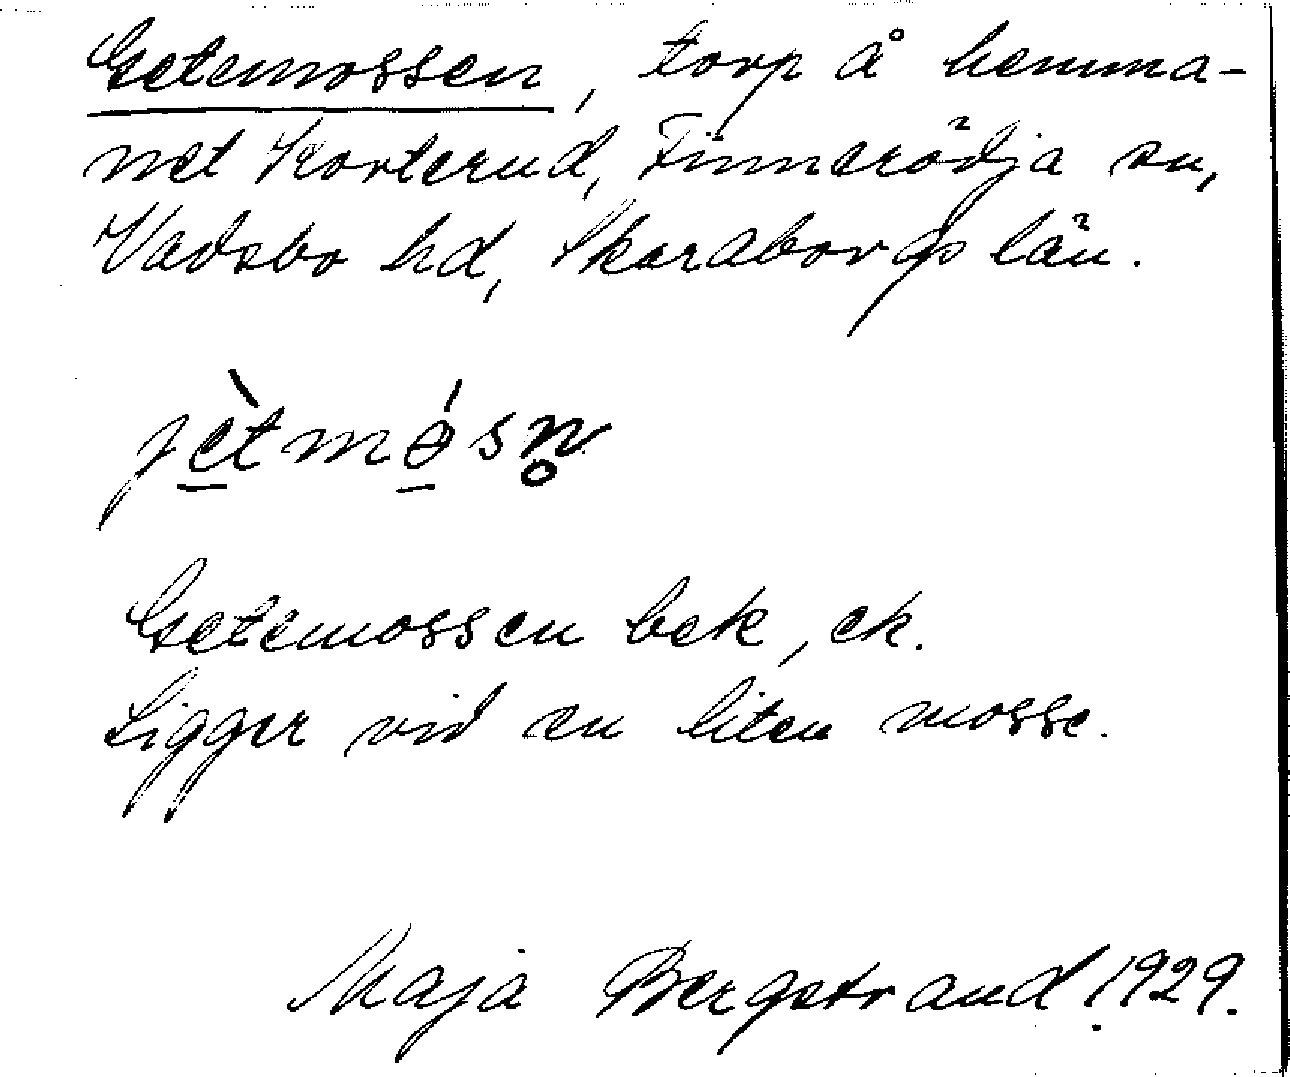 Getemossen, torp å hemma-
net Korterud, Finnerödja sn,
Vadsbo hd, Skaraborgs län.
jètmǿsn̥
Getemossen bek, ek.
Ligger vid en liten mosse.
Maja Bergstrand. 1929.